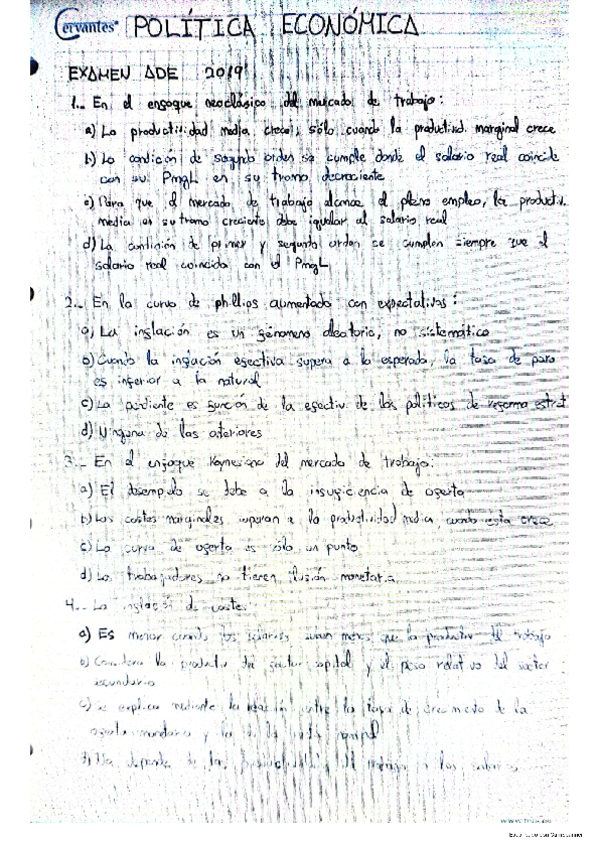 Cervantes® POLÍTICA ECONÓMICA
EXAMEN ADE 2019
1.- En el enfoque neoclásico del mercado de trabajo:
a) La productividad media crece, sólo cuando la productivd. marginal crece
b) La condición de segundo orden se cumple donde el salario real coincide
con su PmgL en su tramo decreciente
c) Para que el mercado de trabajo alcance el pleno empleo, la productiv.
media en su tramo creciente debe igualar al salario real
d) La condición de primer y segundo orden se cumplen siempre que el
salario real coincida con el PmgL
2.- En la curva de phillips aumentada con expectativas:
a) La inflación es un fenómeno aleatorio, no sistemático
b) Cuando la inflación efectiva supera a la esperada, la tasa de paro
es inferior a la natural
c) La pendiente es función de la efectiv. de las políticas de reforma estruct
d) Ninguna de las anteriores
3.- En el enfoque Keynesiano del mercado de trabajo:
a) El desempleo se debe a la insuficiencia de oferta
b) Los costes marginales superan a la productividad media cuando esta crece
c) La curva de oferta es sólo un punto
d) Los trabajadores no tienen ilusión monetaria
4.- La inflación de costes
a) Es menor cuando los salarios suben menos que la productiv del trabajo
b) Considera la productiv del factor capital y el peso relativo del sector
secundario
c) Se explica mediante la relación entre la tasa de crecimiento de la
oferta monetaria y la
d) de la del trabajo